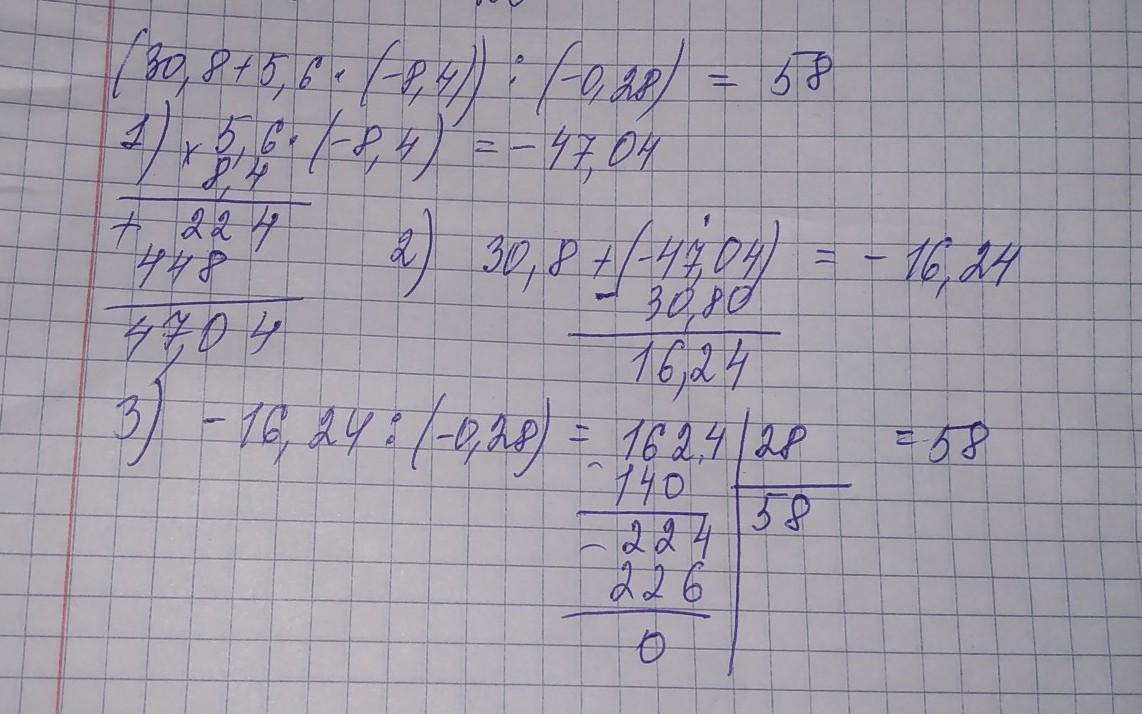 (30,8+5,6·(-8,4)):(-0,28) = 58
1) × 5,6·(-8,4) = -47,04
8,4
+ 224
448
47,04
2) 30,8+(-47,04) = -16,24
- 30,80
16,24
3) -16,24:(-0,28) = 162,4 | 28 = 58
- 140 58
- 224
226
0